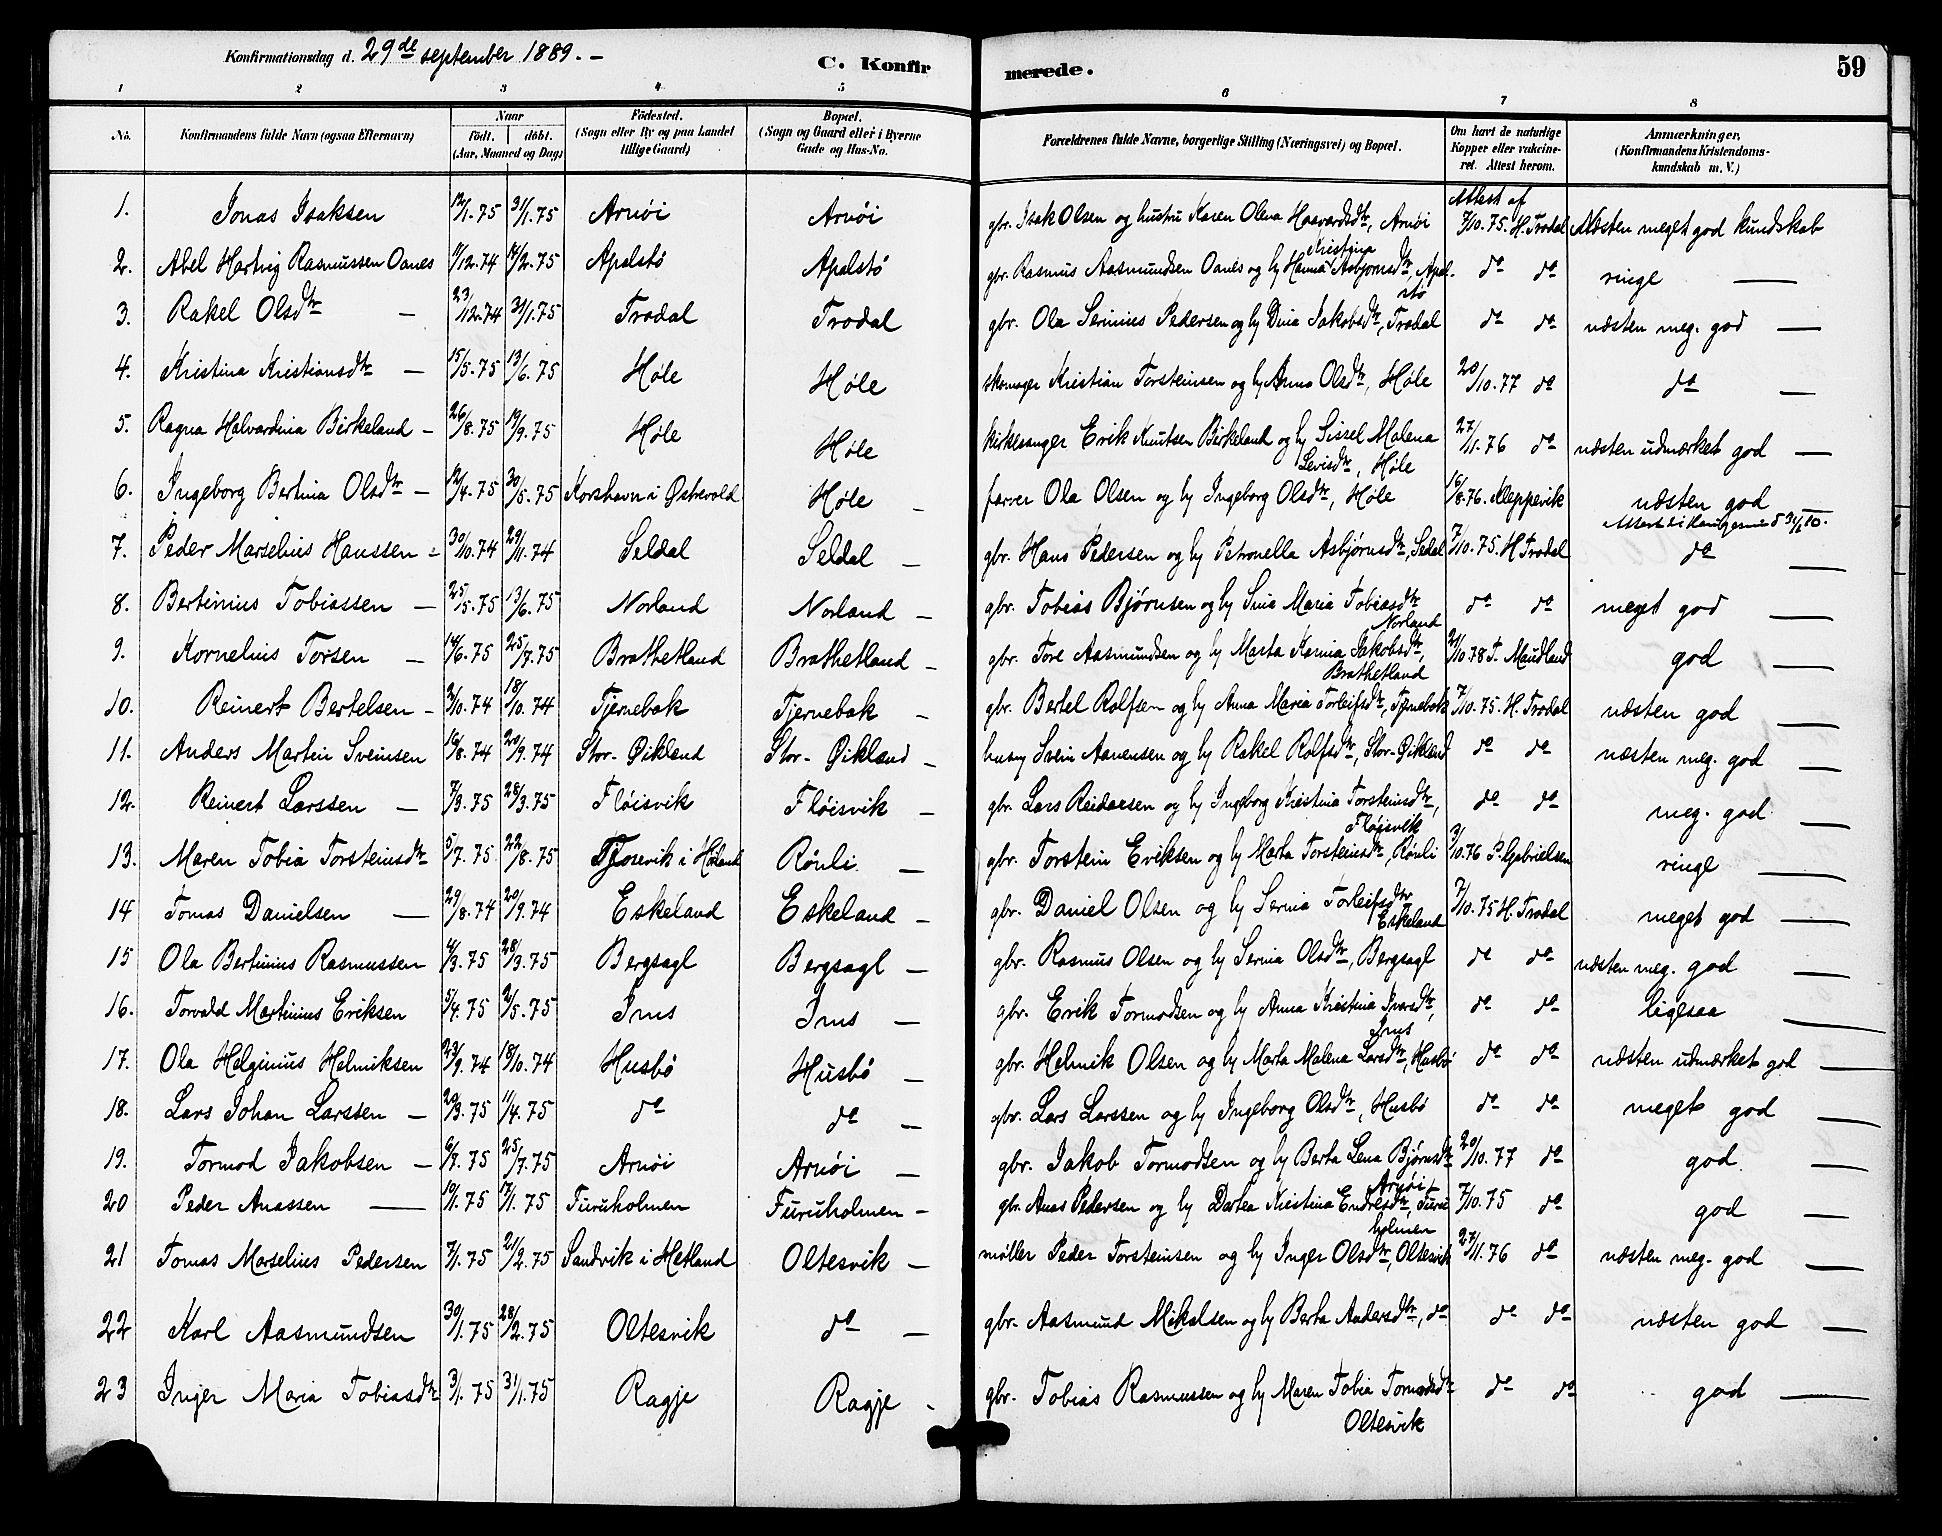 Konfirmationsdag d. 29de september 1889. –
C. Konfirmerede.
59
1 2 3 4 5 6 7 8
No. Konfirmandens fulde Navn (ogsaa Efternavn) Naar födt. döbt. (Aar, Maaned og Dag) Födested. (Sogn eller By og paa Landet tillige Gaard) Bopæl. (Sogn og Gaard eller i Byerne Gade og Hus-No. Forældrenes fulde Navne, borgerlige Stilling (Næringsvei) og Bopæl. Om havt de naturlige Kopper eller vakcineret. Attest herom. Anmærkninger, (Konfirmandens Kristendomskundskab m. V.)
1. Jonas Isaksen 12/1.75 31/1.75 Arnöi Arnöi gbr. Isak Olsen og hustru Karen Olena Haavardsdtr, Arnöi Attest af 7/10.75. H. Trodal Næsten meget god kundskab
2. Abel Hartvig Rasmussen Oanes 11/12.74 14/2.75 Apalstö Apalstö gbr. Rasmus Aasmundsen Oanes og h Hanna Kristina Asbjornsdtr, Apalstö do do ringe —
3. Rakel Olsdtr – 23/12.74 31/1.75 Trodal Trodal gbr. Ola Serinius Pedersen og h Dina Jakobsdtr, Trodal do do næsten meg. god —
4. Kristina Kristiansdtr – 15/5.75 13/6.75 Höle Höle skomager Kristian Torsteinsen og h Anna Olsdtr, Höle 20/10.77 do do —
5. Ragna Halvardina Birkeland – 26/8.75 19/9.75 Höle Höle kirkesanger Erik Knutsen Birkeland og h Sissel Malena Levisdtr, Höle 27/11.76 do næsten udmærket god —
6. Ingeborg Bertina Olsdtr – 12/4.75 30/5.75 Korshavn i Østrevold Höle – farver Ola Olsen og h Ingeborg Olsdtr, Höle 16/8.76. Kleppevik næsten god —
7. Peder Marselius Hanssen – 30/10.74 29/11.74 Seldal Seldal – gbr. Hans Pedersen og h Petronella Asbjörnsdtr, Sedal 7/10.75. H Trodal do —
8. Bertinius Tobiassen – 25/5.75 13/6.75 Norland Norland – gbr. Tobias Bjørnsen og h Sina Maria Tobiasdtr Norland do do meget god —
9. Kornelius Torsen – 14/6.75 25/7.75 Brathetland Brathetland – gbr. Tore Aasmundsen og h Marta Karina Jakobsdtr, Brathetland 21/10.78 T. Maudland god —
10. Reinert Bertelsen – 3/10.74 18/10.74 Tjernebak Tjernebak – gbr. Bertel Rolfsen og h Anna Maria Torleifsdtr, Tjernebak 7/10.75. H. Trodal næsten god —
11. Anders Martin Sveinsen 16/8.74 20/9.74 Stor-Øikland Stor-Øikland – husm Svein Aanensen og h Rakel Rolfsdtr, Stor-Øikland do do næsten meg. god —
12. Reinert Larssen – 7/3.75 28/3.75 Flöisvik Flöisvik – gbr. Lars Reidarsen og h Ingeborg Kristina Torsteinsdtr, Flöisvik do do meg. god —
13. Maren Tobia Torsteinsdtr 5/7.75 22/8.75 i Höland Rönli. – gbr. Torstein Eriksen og h Marta Torsteinsdtr, Rönli 3/10.76 P. Gabrielsen ringe —
14 Tomas Danielsen – 29/8.74 20/9.74 Eskeland Eskeland – gbr. Daniel Olsen og h Serina Torleifsdtr Eskeland 7/10.75 H. Trodal meget god —
15 Ola Bertinius Rasmussen 4/3.75 28/3.75 Bergsagl Bergsagl – gbr. Rasmus Olsen og h Serina Olsdtr, Bergsagl do do næsten meg. god —
16. Torvald Martinius Eriksen 5/4.75 2/5.75 Ims Ims – gbr. Erik Tormodsen og h Anna Kristina Ivarsdtr, Ims do do ligesaa —
17. Ola Helginius Helmiksen 23/9.74 18/10.74 Husbö Husbö – gbr. Helmik Olsen og h Marta Malena Larsdtr, Husbö do do næsten udmærket god —
18. Lars Johan Larssen – 20/3.75 11/4.75 do do – gbr. Lars Larssen og h Ingeborg Olsdtr, Husbö do do meget god —
19. Tormod Jakobsen – 6/7.75 25/7.75 Arnöi Arnöi – gbr. Jakob Tormodsen og h Berta Lena Bjørnsdtr Arnöi 20/10.77 do god. —
20 Peder Anassen — 10/1.75 17/1.75 Furuholmen Furuholmen – gbr. Anas Pedersen og h Dartea Kristina Endresdtr, Furuholmen 7/10.75 do god —
21 Tomas Marselius Pedersen 7/1.75 21/2.75 Sandvik i Hetland Oltesvik – möller Peder Torsteinsen og h Inger Olsdtr, Oltesvik 27/11.76 do næsten meg. god —
22 Karl Aasmundsen 30/1.75 28/2.75 Oltesvik do – gbr. Aasmund Mikalsen og h Berta Andersdtr, do do do næsten god —
23 Inger Maria Tobiasdtr 3/1.75 31/1.75 Ragje Ragje – gbr. Tobias Rasmussen og h Maren Tobia Tormodsdtr Oltesvik do do god —